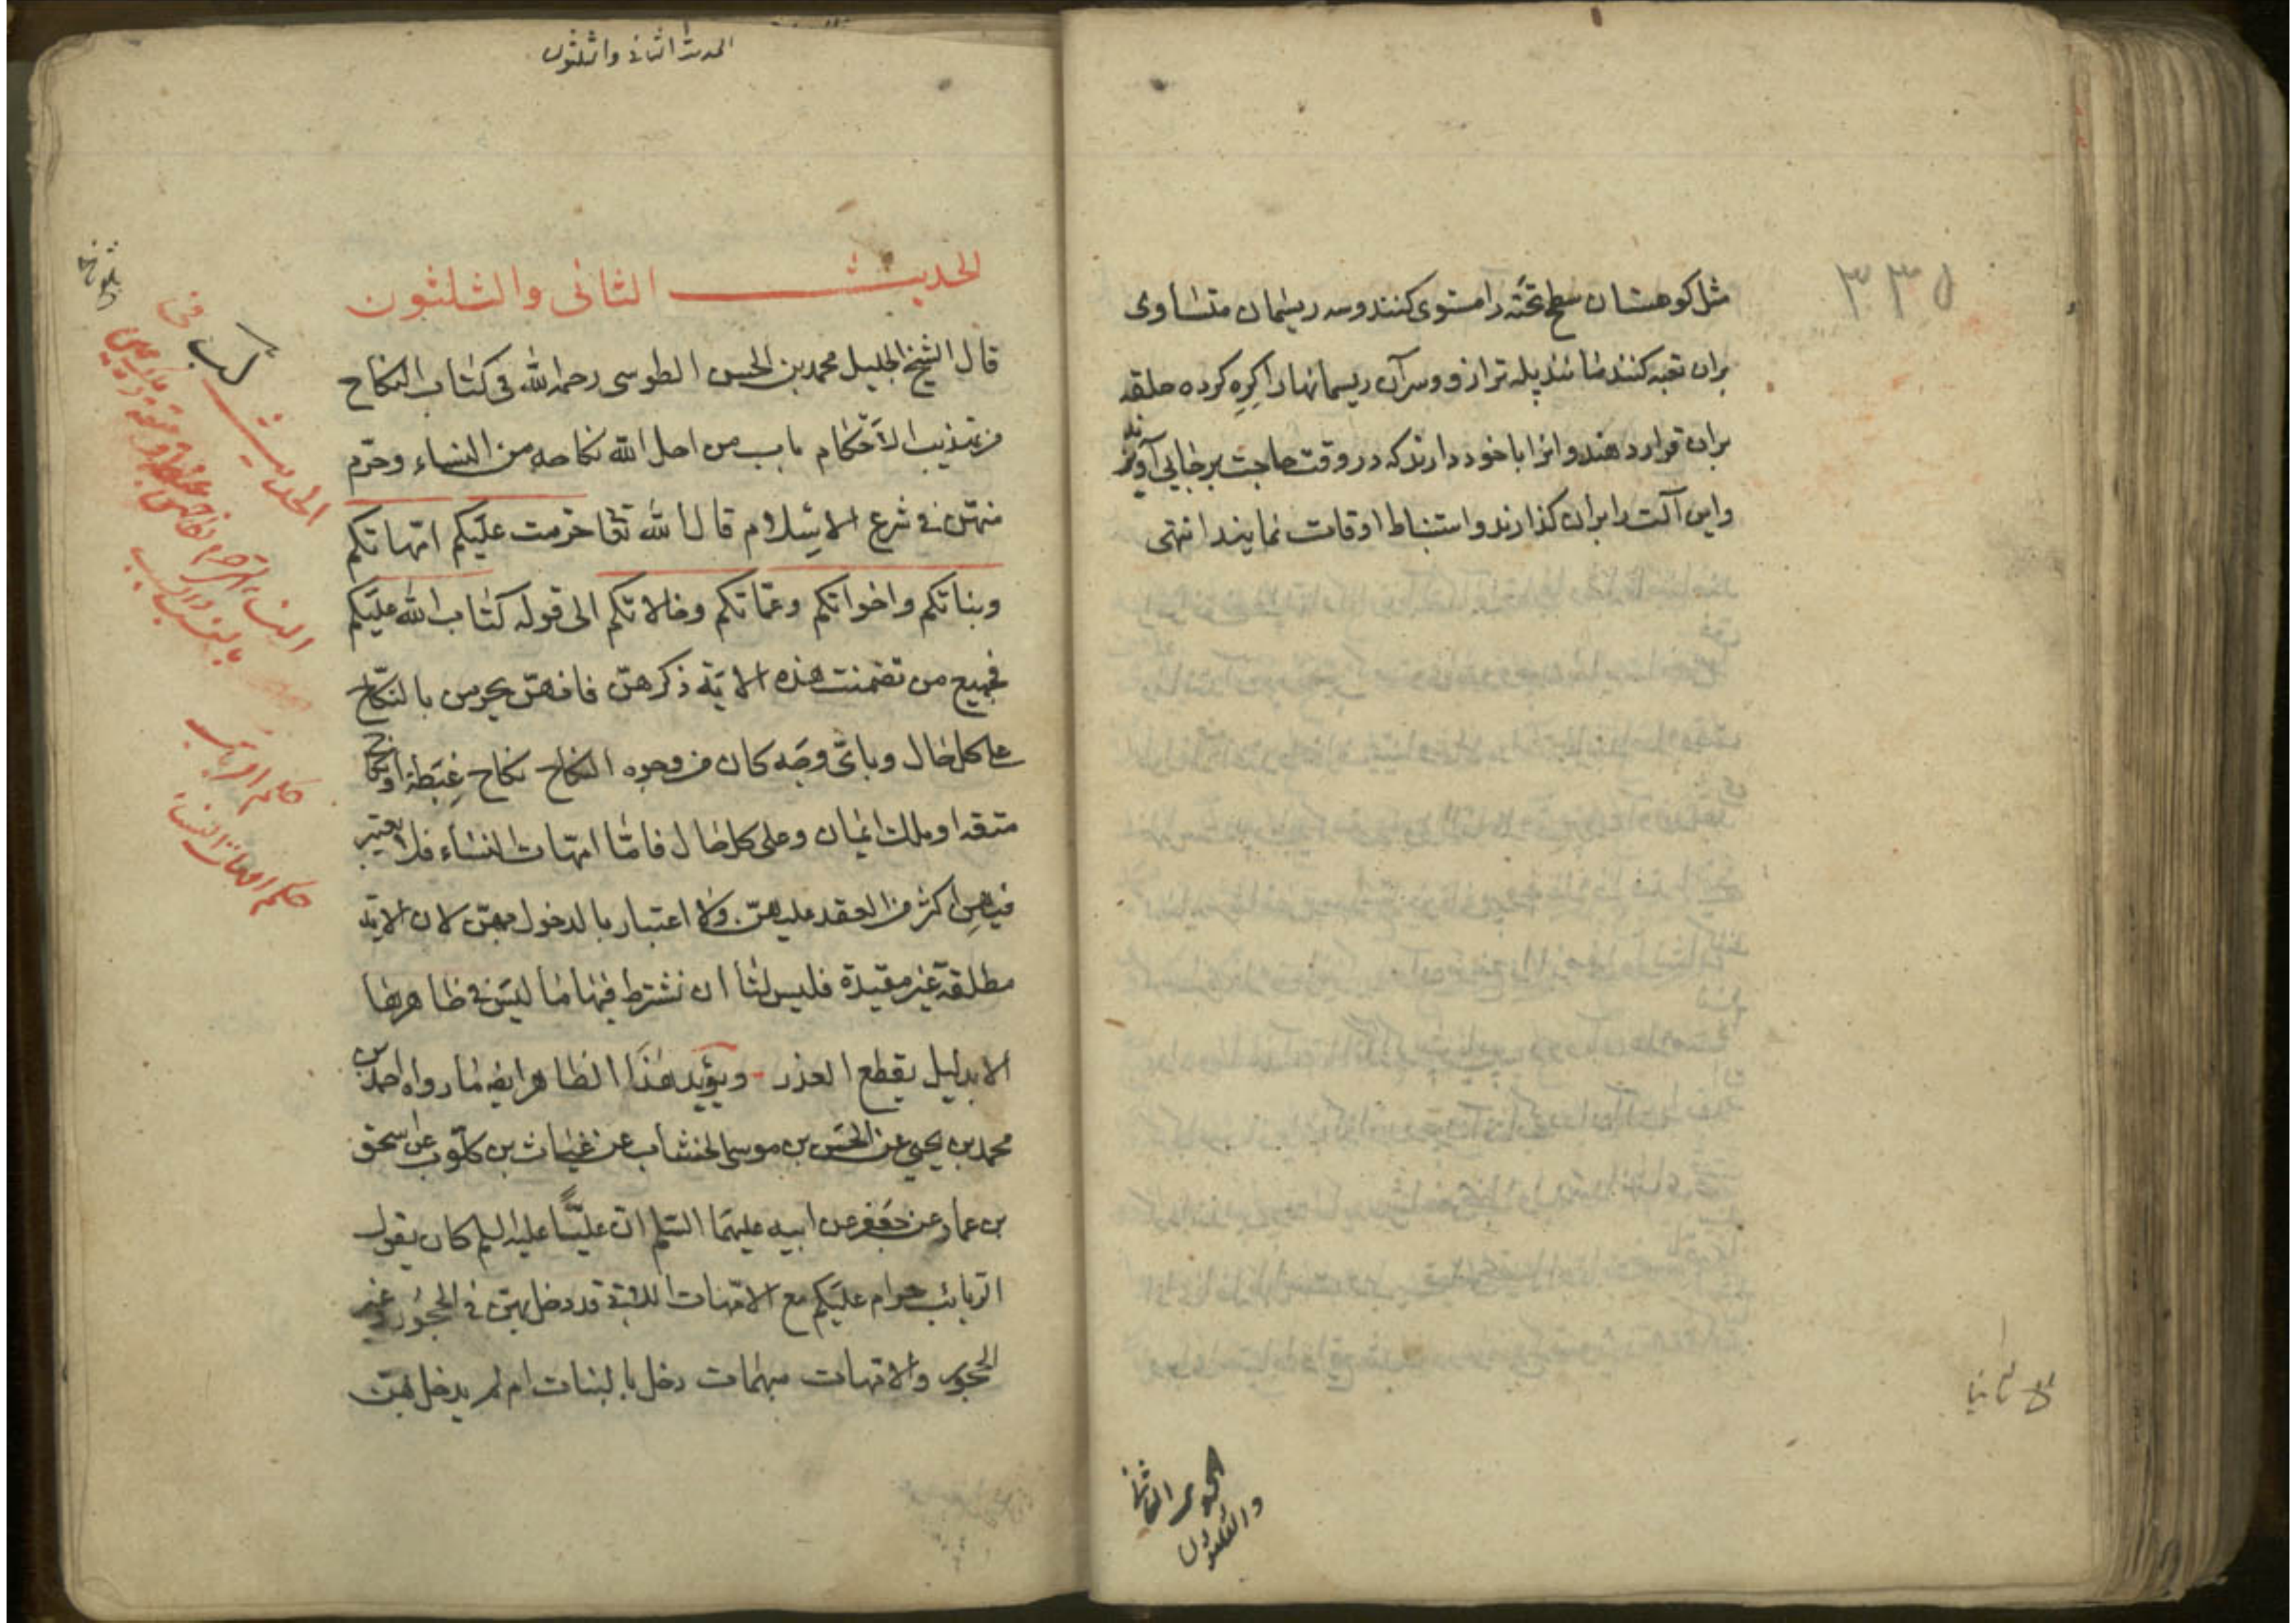 مثل كوهستان سطح تخته را مستوى كنند و سه ريسمان متساوى
بران تعبه كنند مانند پله ترازو و سر آن ريسمانها را كره كرده حلقه
بران قرار دهند و انرا با خود دارند كه در وقت حاجت بر جايى آويزند
واين آلت را بران كذارند و استنباط اوقات نمايند انتهى
٣٣٥
الحديث الثانى
والثلثون
الحديث الثانى والثلثون
الحديث الثانى والثلثون
قال الشيخ الجليل محمد بن الحسن الطوسى رحمه الله فى كتاب النكاح
من تهذيب الأحكام باب من احل الله نكاحه من النساء وحرّم
منهنّ فى شرع الاسلام قال الله تعا حرّمت عليكم امّهاتكم
وبناتكم واخواتكم وعمّاتكم وخالاتكم الى قوله كتاب الله عليكم
فجميع من تضمنت هذه الاية ذكرهنّ فانهنّ يحرمن بالنكاح
على كل حال وباىّ وجه كان من وجوه النكاح نكاح غبطة او نكاح
متعة او ملك ايمان وعلى كل حال فامّا امّهات النساء فلا يعتبر
فيهن اكثر من العقد عليهنّ ولا اعتبار بالدخول بهنّ لان الاية
مطلقة غير مقيدة فليس لنا ان نشترط فيها ما ليس فى ظاهرها
الا بدليل يقطع العذر ويؤيد هذا الظاهر ايضا ما رواه احمد بن
محمد بن يحيى عن الحسن بن موسى الخشاب عن غياث بن كلّوب عن اسحق
بن عمار عن جعفر عن ابيه عليهما السّلم انّ عليّاً عليه السلم كان يقول
الربائب حرام عليكم مع الامّهات اللاتى قد دخل بهنّ فى الحجور وغير
الحجور والامّهات مبهمات دخل بالبنات ام لم يدخل بهنّ
حكم امهات النساء